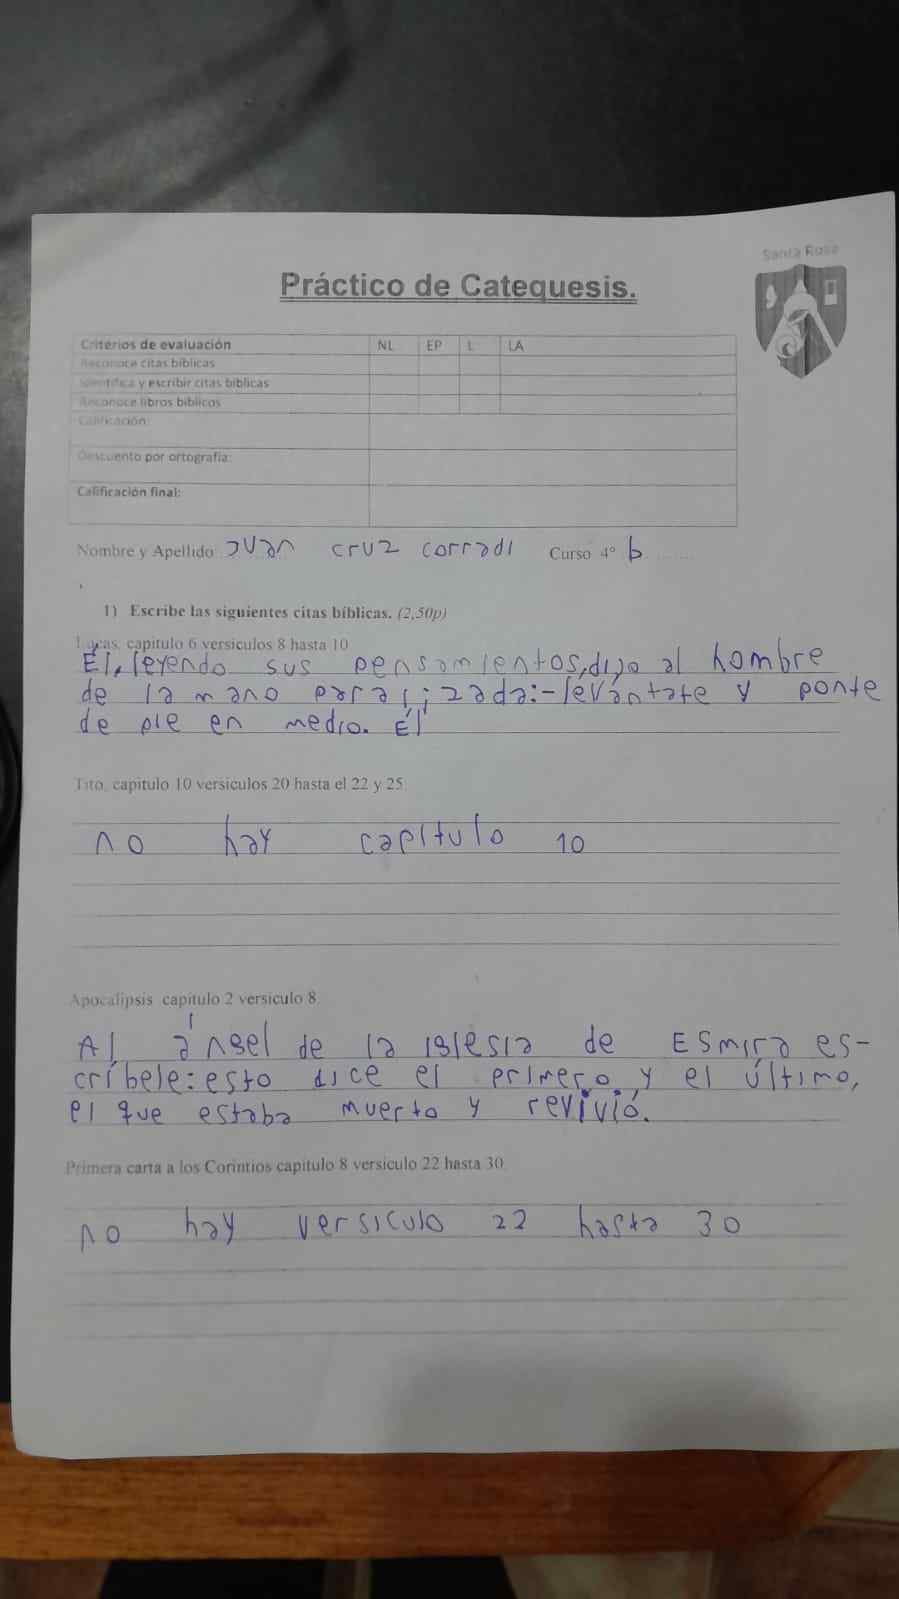 Santa Rosa
Práctico de Catequesis.
Criterios de evaluación NL EP L LA
Reconoce citas bíblicas
Identifica y escribir citas bíblicas
Reconoce libros bíblicos
Calificación:
Descuento por ortografía:
Calificación final:
Nombre y Apellido Juan cruz corradi Curso 4° b ........
1) Escribe las siguientes citas bíblicas. (2,50p)
Lucas, capitulo 6 versiculos 8 hasta 10
Él, leyendo sus pensamientos, dijo al hombre
de la mano paralizada: -levántate y ponte
de pie en medio. Él
Tito, capitulo 10 versiculos 20 hasta el 22 y 25.
no hay capitulo 10
Apocalipsis capitulo 2 versiculo 8.
Al ángel de la iglesia de Esmira es-
críbele: esto dice el primero y el último,
el que estaba muerto y revivió.
Primera carta a los Corintios capitulo 8 versiculo 22 hasta 30.
no hay versiculo 22 hasta 30